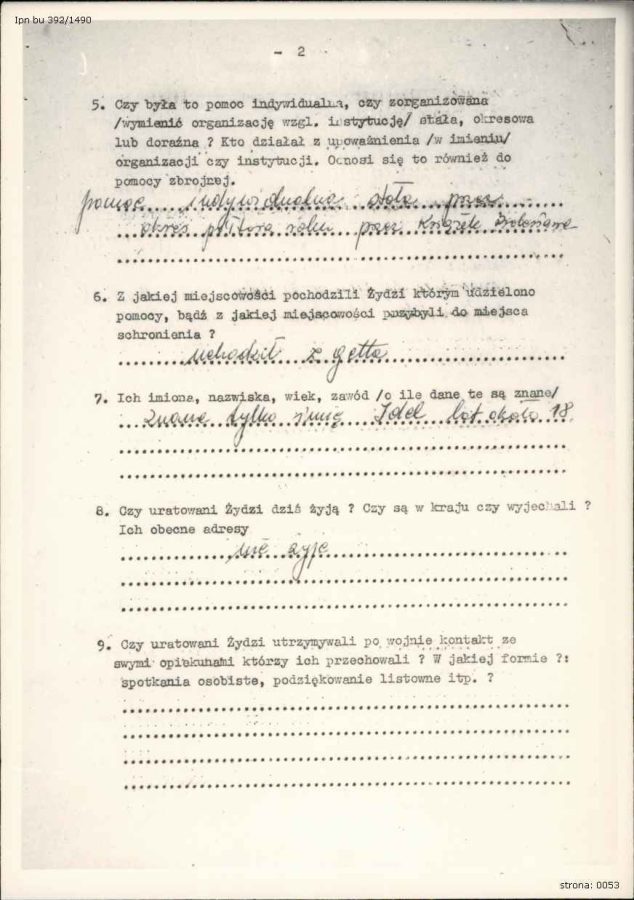 Ipn bu 392/1490
- 2
5. Czy była to pomoc indywidualna, czy zorganizowana
/wymienić organizację wzgl. instytucję/ stała, okresowa
lub doraźna ? Kto działał z upoważnienia /w imieniu/
organizacji czy instytucji. Odnosi się to również do
pomocy zbrojnej.
pomoc indywidualna stała przez
okres półtora roku przez
6. Z jakiej miejscowości pochodzili Żydzi którym udzielono
pomocy, bądź z jakiej miejscowości przybyli do miejsca
schronienia ?
uchodził z getta
7. Ich imiona, nazwiska, wiek, zawód /o ile dane te są znane/
znane tylko imię Idel lat około 18
8. Czy uratowani Żydzi dziś żyją ? Czy są w kraju czy wyjechali ?
Ich obecne adresy
nie żyje
9. Czy uratowani Żydzi utrzymywali po wojnie kontakt ze
swymi opiekunami którzy ich przechowali ? W jakiej formie ?:
spotkania osobiste, podziękowanie listowne itp. ?
strona: 0053